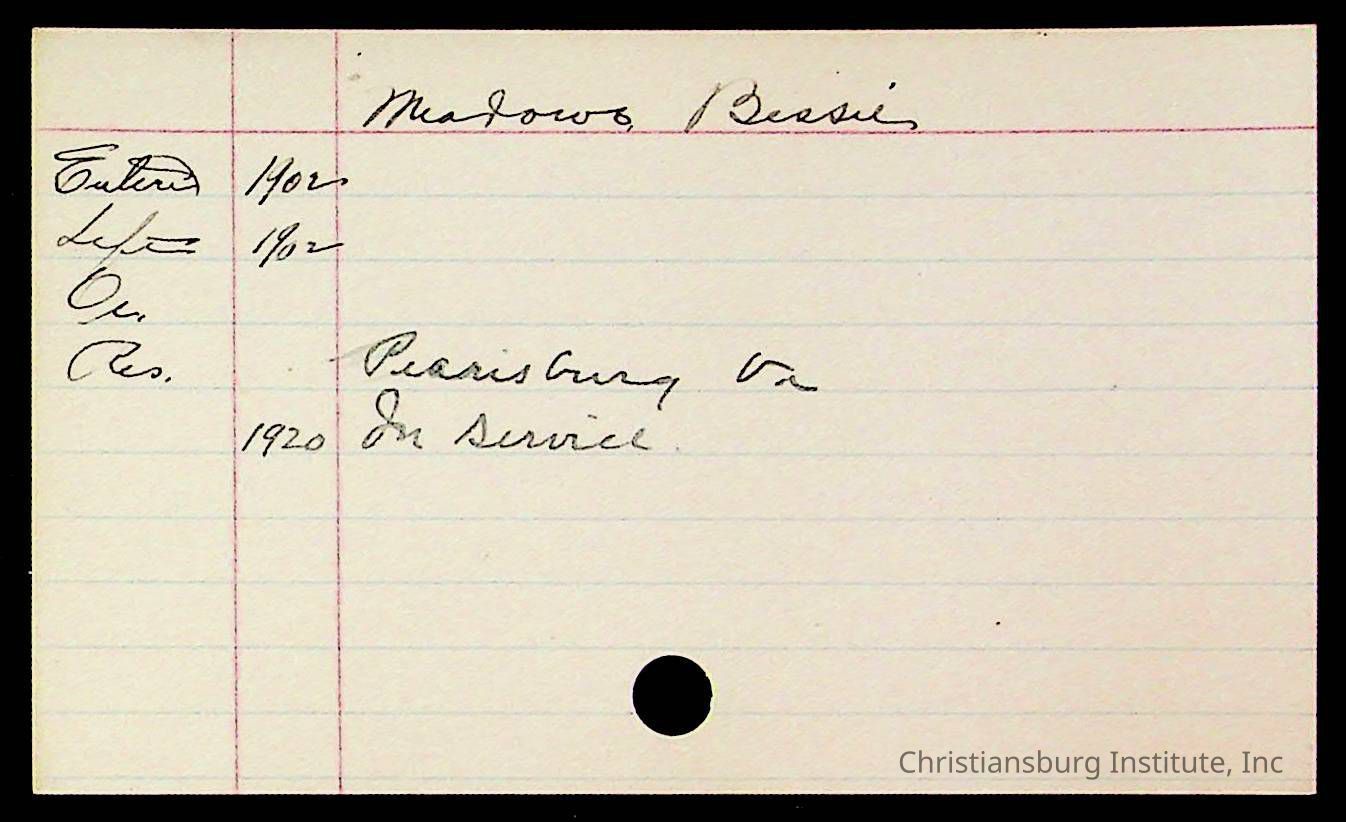 Meadows, Bessie
Entered 1902
Left 1902
Oc.
Res. Pearisburg Va
1920 In service.
Christiansburg Institute, Inc